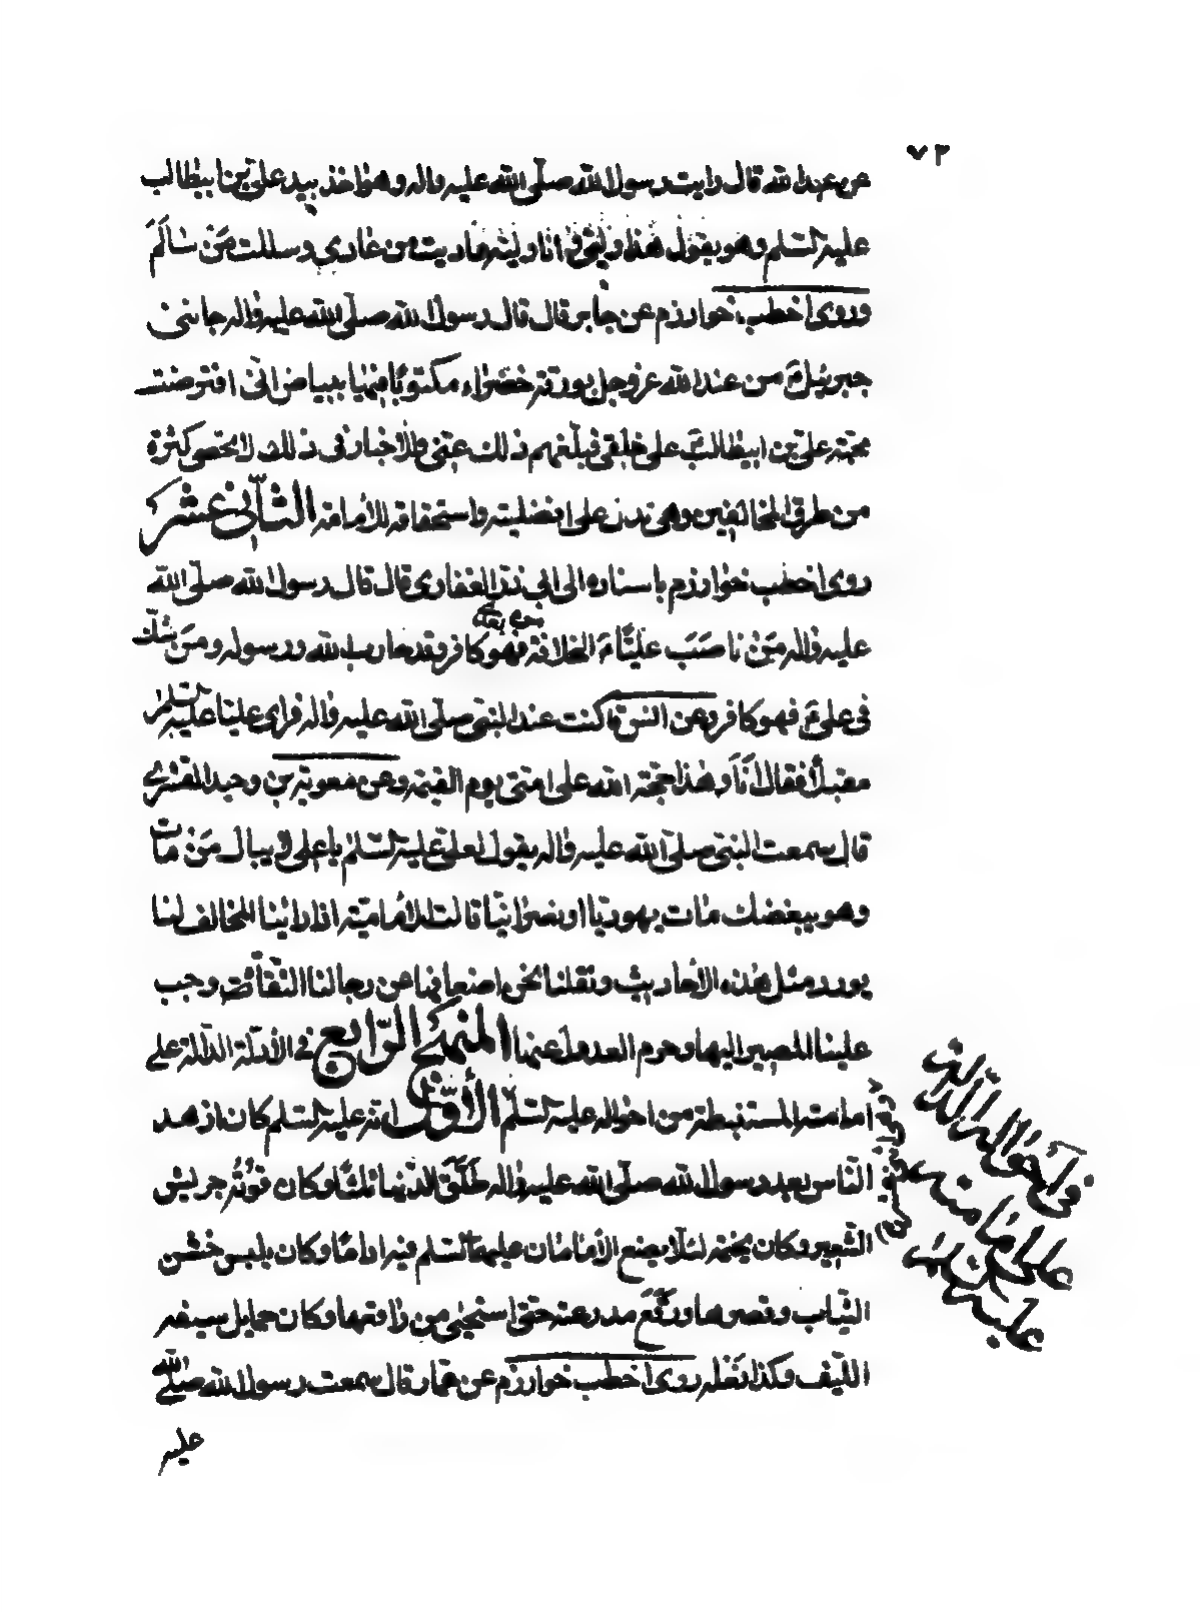 ٧٣
عن عبد الله قال رايت رسول الله صلّى الله عليه واله وهو اخذ بيد علىّ بن ابيطالب
عليه السّلم وهو يقول هذا وليّى وانا وليّه عاديت من عادى وسالمت مَنْ سَالَمَ
وروى اخطب خوارزم عن جابر قال قال رسول الله صلّى الله عليه واله جائنى
جبرئيل ع من عند الله عزوجل بورقة خضراء مكتوبًا فيها ببياض انّى افترضت
محبّة علىّ بن ابيطالب ع على خلقى فبلّغهم ذلك عنّى والاخبار فى ذلك لا تحصى كثرة
من طرق المخالفين وهى تدل على افضليته واستحقاقه للأمامة الثّانى عشر
روى اخطب خوارزم باسناده الى ابى ذر الغفارى قال قال رسول الله صلّى الله
عليه واله مَنْ نَاصَبَ عَلِيًّا ع الخلافة فهو كافر وقد حارب الله ورسوله ومَن شكّ
بعدى
فى على ع فهو كافر وعن انس قال كنت عند النبىّ صلّى الله عليه واله فراى عليا عليه السّلم
مقبلاً فقال اَنَا وهذا حجّة الله على امتى يوم القيمة وعن معوية بن وحيد القشرى
قال سمعت النبىّ صلّى الله عليه واله يقول لعلىّ عليه السّلم يا على لا يبال مَنْ مات
وهو يبغضك مات يهوديّا او نصرانيّا قالت الأماميّة اذا راينا المخالف لنا
يورد مثل هذه الاحاديث ونقلنا نحن اضعافها عن رجالنا الثّقات وجب
علينا المصير اليها وحرم العدول عنها المنهج الرّابع فى الأدلّة الدالّة على
امامته المستنبطة من احواله عليه السّلم الأوّل انه عليه السّلم كان ازهد
النّاس بعد رسول الله صلّى الله عليه واله طَلَّقَ الدّنيا ثلثًا وكان قوتُه جريش
الشّعير وكان يختمه لئلّا يضع الأمامان عليهما السّلم فيه ادامًا وكان يلبس خشن
الثّياب وقصيرها ورَقَّعَ مدرعته حتّى استحيى من راقعها وكان حمايل سيفه
اللّيف وكذا نعله روى اخطب خوارزم عن عمّار قال سمعت رسول الله صلّى الله
عليه
فى احواله الدالة
على امامته
عليه السلم